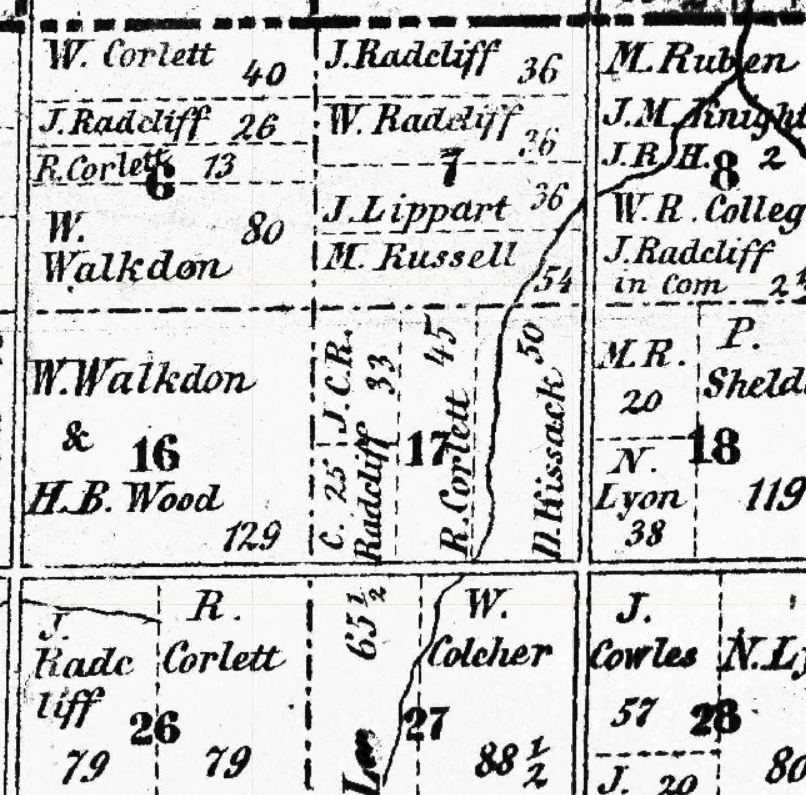 W. Corlett 40
J. Radcliff 26
R. Corlett 13
6
W. 80
Walkdon
J. Radcliff 36
W. Radcliff 36
7
J. Lippart 36
M. Russell 54
M. Ruben
J.M. Knight
J.R.H. 2
8
W.R. Colleg
J. Radcliff
in Com 2
W. Walkdon
&
16
H.B. Wood
129
J.C.R.
C. 25
Radcliff 33
17
R. Corlett 45
D. Kissack 50
M.R.
20
P.
Sheld
N.
Lyon
38
18
119
J.
Radc
liff
79
R.
Corlett
79
26
65 1/2
W.
Colcher
27
88 1/2
J.
Cowles
57
28
N. Ly
J. 20
80